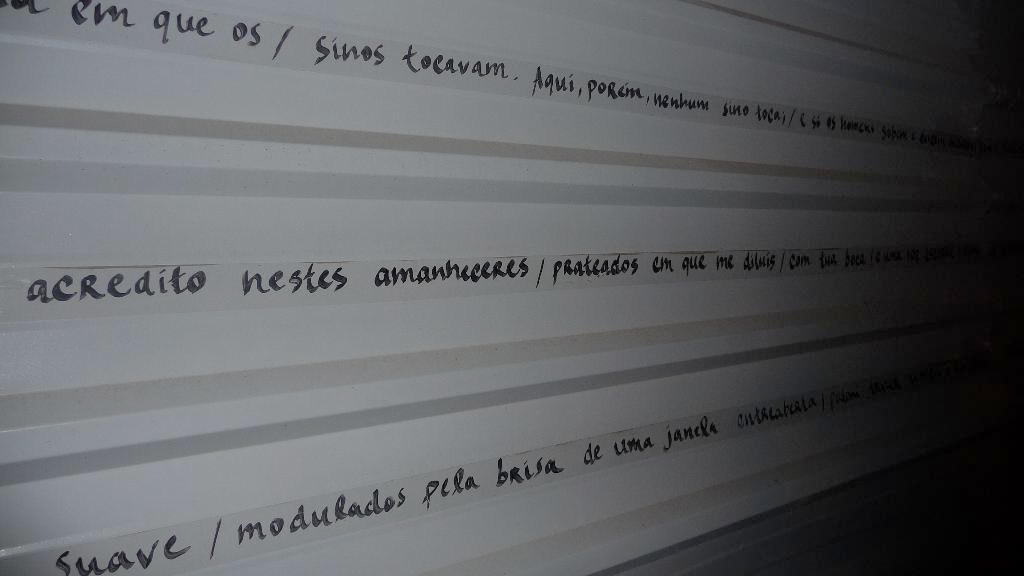 em que os / sinos tocavam. Aqui, porém, nenhum sino toca, / e só os homens sabem e
acredito nestes amanheceres / prateados em que me diluis / com tua boca / e uma voz
suave / modulados pela brisa de uma janela entreaberta /